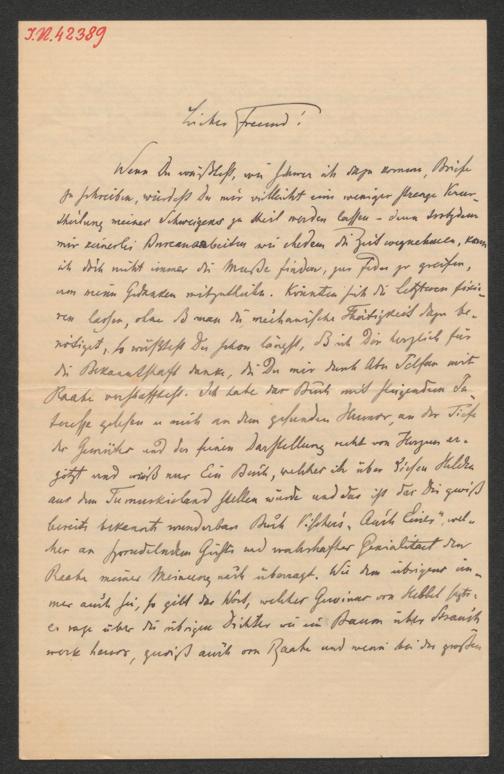 I.N. 42389
Lieber Freund!
Wenn Du wüßtest, wie schwer ich dazu komme, Briefe
zu schreiben, würdest Du mir vielleicht eine weniger strenge Verur-
theilung meines Schweigens zu theil werden lassen – denn trotzdem
mir keinerlei Bureauarbeiten wie ehedem die Zeit wegnehmen, kann
ich doch nicht immer die Muße finden, zur Feder zu greifen,
um meine Gedanken mitzutheilen. Könnten sich die letzteren fixi-
ren lassen, ohne daß man die mechanische Thätigkeit dazu be-
nötiget, so wüßtest Du schon längst, daß ich Dir herzlich für
die Bekanntschaft danke, die Du mir durch Abu Telfan mit
Raabe verschafftest. Ich habe das Buch mit steigendem In-
teresse gelesen u mich an dem gesunden Humor, an der Tiefe
des Gemütes und der feinen Darstellung recht von Herzen er-
götzt und weiß nur Ein Buch, welches ich über diesen Helden
aus dem Tumurkieland stellen würde und das ist das Dir gewiß
bereits bekannte wunderbare Buch Vischers, „Auch Einer", wel-
ches an sprudelndem Geiste und wahrhafter Genialität den
Raabe meiner Meinung nach überragt. Wie dem übrigens im-
mer auch sei, so gilt das Wort, welches von Hebbel sagt:
er rage über die übrigen Dichter wie ein Baum über Strauch-
werk hervor, gewiß auch von Raabe und wenn bei der großen